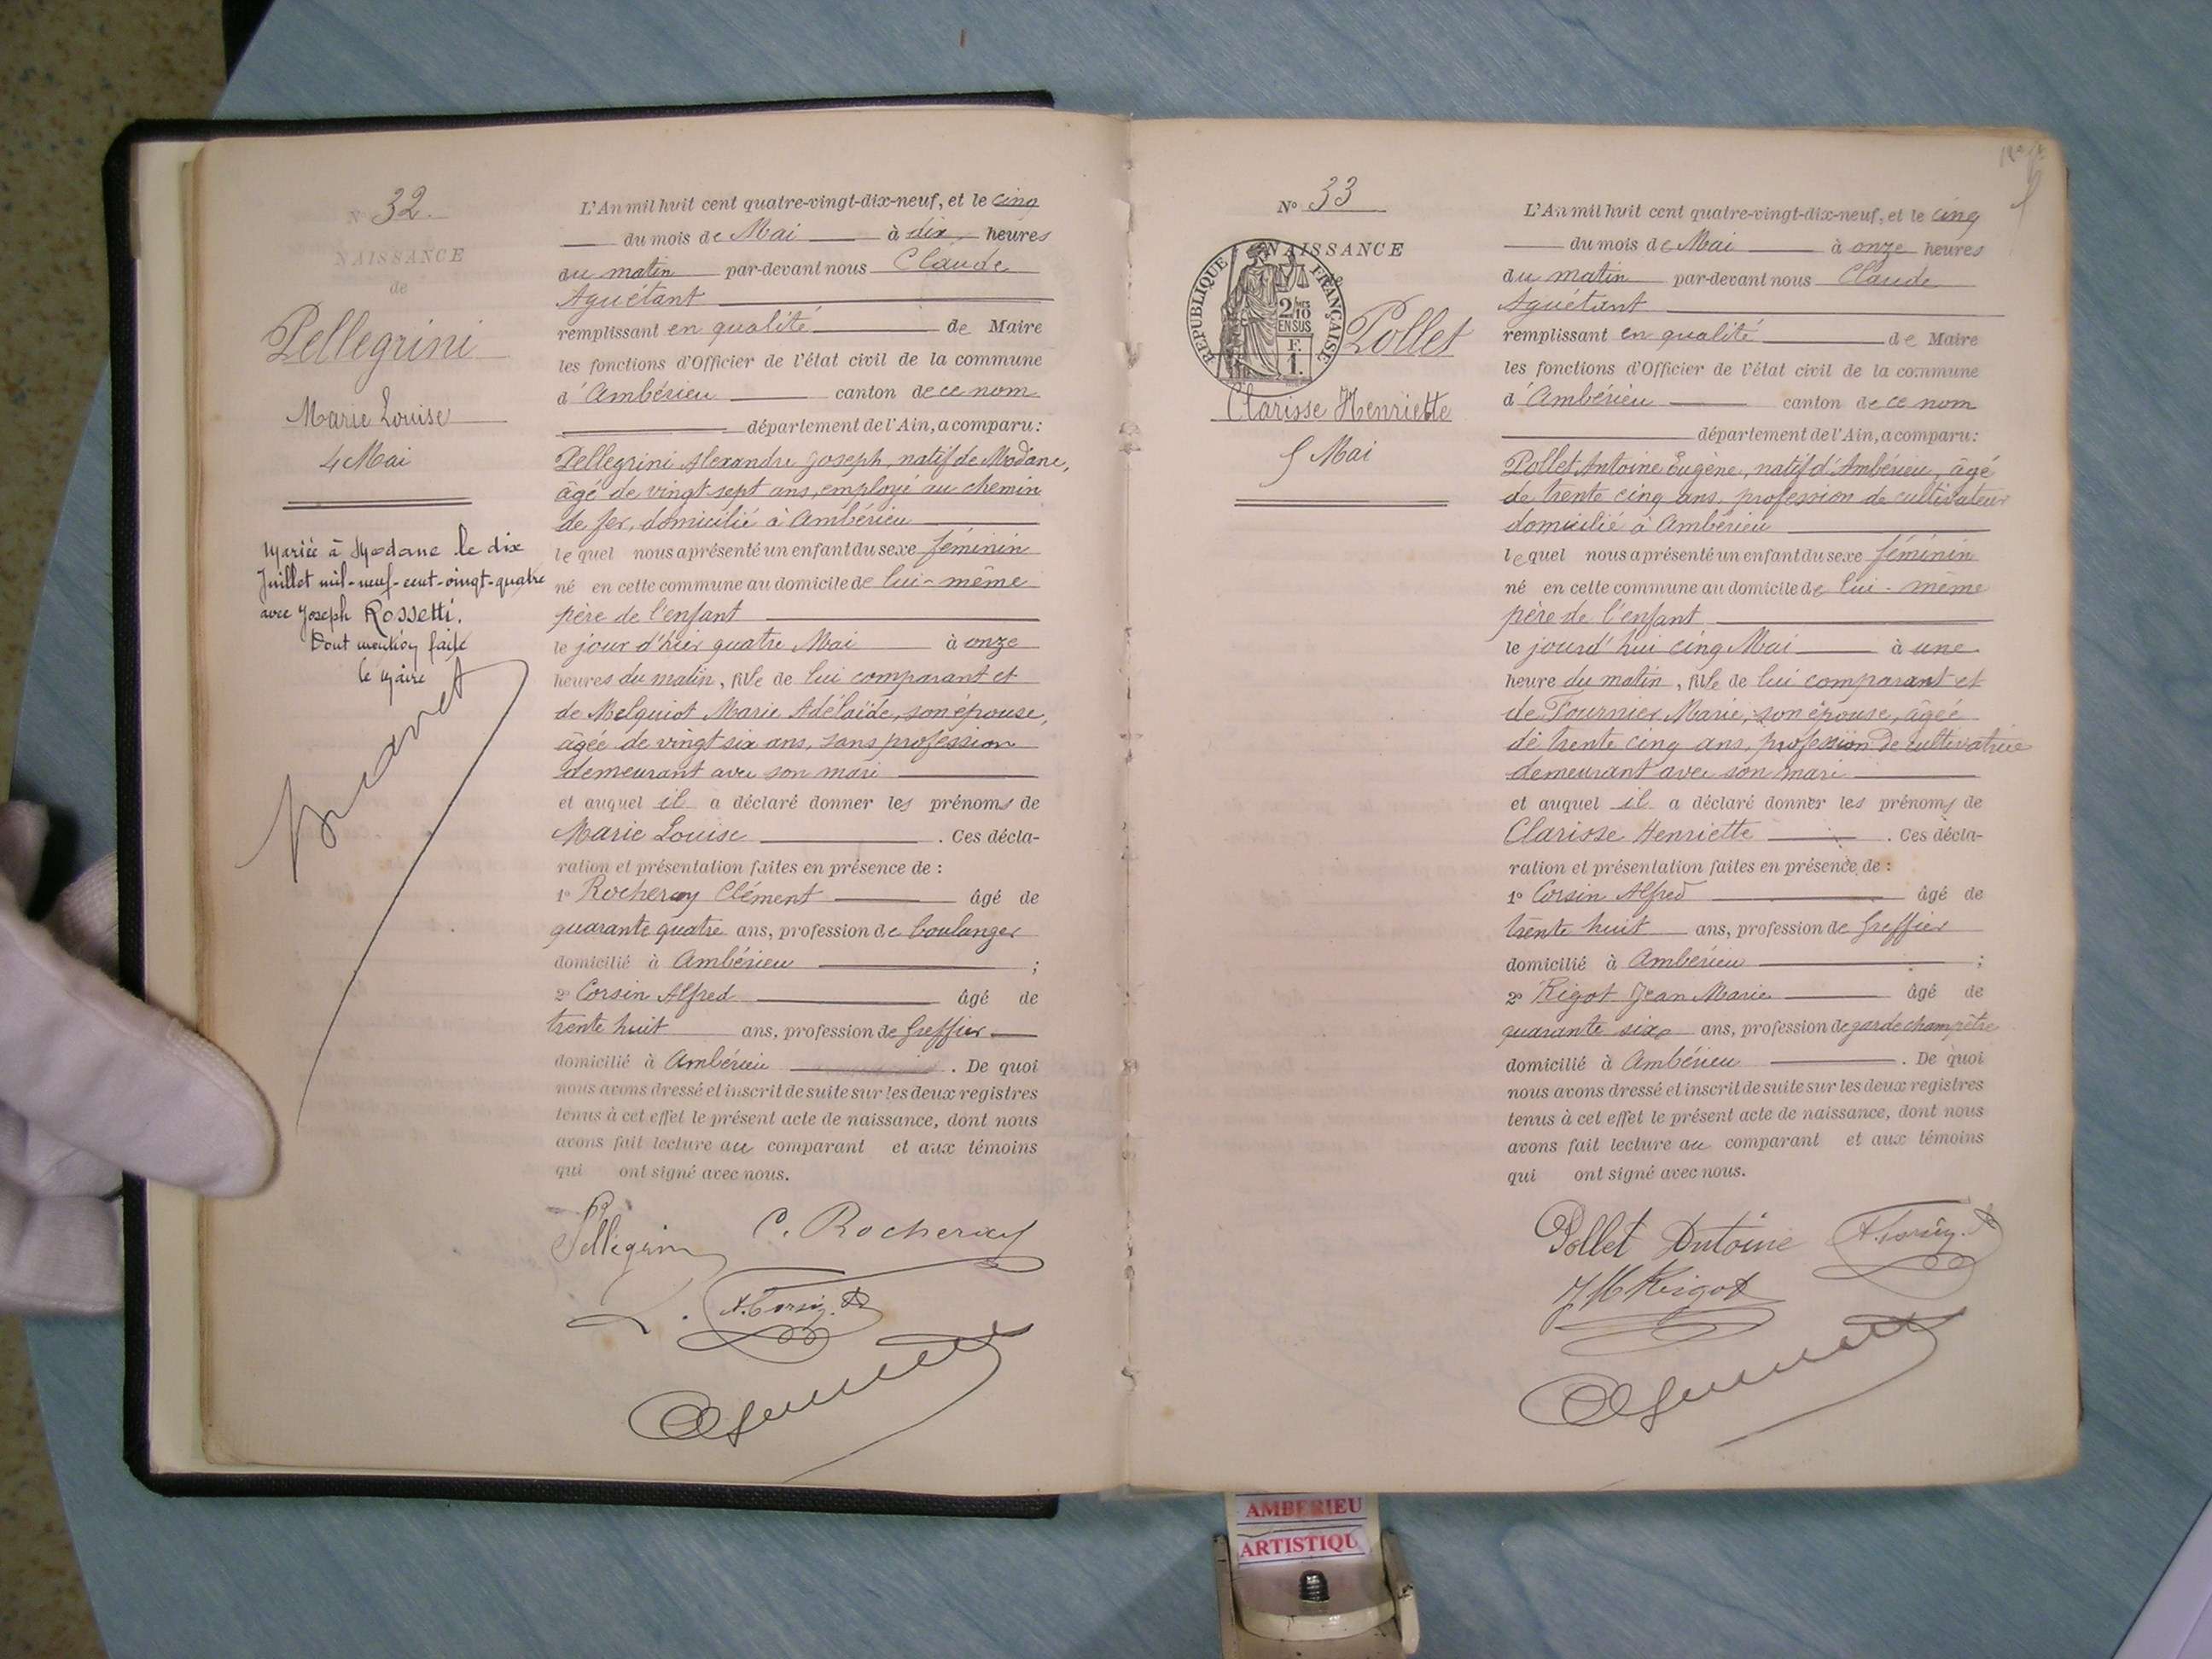 N° 32.
NAISSANCE
de
Pellegrini
Marie Louise
4 Mai
Mariée à Modane le dix
Juillet mil-neuf-cent-vingt-quatre
avec Joseph Rossetti.
Dont mention faite
le Maire
L'An mil huit cent quatre-vingt-dix-neuf, et le cinq
du mois de Mai à dix heures
du matin par-devant nous Claude
Aguétant
remplissant en qualité de Maire
les fonctions d'Officier de l'état civil de la commune
d'Ambérieu canton de ce nom
département de l'Ain, a comparu:
Pellegrini Alexandre Joseph, natif de Modane,
âgé de vingt-sept ans, employé au chemin
de fer, domicilié à Ambérieu
le quel nous a présenté un enfant du sexe féminin
né en cette commune au domicile de lui-même
père de l'enfant
le jour d'hier quatre Mai à onze
heures du matin, fille de lui comparant et
de Melquiot Marie Adélaïde, son épouse,
âgée de vingt six ans, sans profession
demeurant avec son mari
et auquel il a déclaré donner les prénoms de
Marie Louise. Ces décla-
ration et présentation faites en présence de :
1° Rocheray Clément âgé de
quarante quatre ans, profession de boulanger
domicilié à Ambérieu ;
2° Corsin Alfred âgé de
trente huit ans, profession de Greffier
domicilié à Ambérieu. De quoi
nous avons dressé et inscrit de suite sur les deux registres
tenus à cet effet le présent acte de naissance, dont nous
avons fait lecture au comparant et aux témoins
qui ont signé avec nous.
Pellegrini C. Rocheray
A. Corsin
N° 33
NAISSANCE
RÉPUBLIQUE FRANÇAISE
2/10
EN SUS
F.
1.
Pollet
Clarisse Henriette
5 Mai
L'An mil huit cent quatre-vingt-dix-neuf, et le cinq
du mois de Mai à onze heures
du matin par-devant nous Claude
Aguétant
remplissant en qualité de Maire
les fonctions d'Officier de l'état civil de la commune
d'Ambérieu canton de ce nom
département de l'Ain, a comparu:
Pollet Antoine Eugène, natif d'Ambérieu, âgé
de trente cinq ans, profession de cultivateur
domicilié à Ambérieu
le quel nous a présenté un enfant du sexe féminin
né en cette commune au domicile de lui-même
père de l'enfant
le jourd'hui cinq Mai à une
heure du matin, fille de lui comparant et
de Fournier Marie, son épouse, âgée
de trente cinq ans, profession de cultivatrice
demeurant avec son mari
et auquel il a déclaré donner les prénoms de
Clarisse Henriette. Ces décla-
ration et présentation faites en présence de :
1° Corsin Alfred âgé de
trente huit ans, profession de Greffier
domicilié à Ambérieu ;
2° Rigot Jean Marie âgé de
quarante six ans, profession de garde champêtre
domicilié à Ambérieu. De quoi
nous avons dressé et inscrit de suite sur les deux registres
tenus à cet effet le présent acte de naissance, dont nous
avons fait lecture au comparant et aux témoins
qui ont signé avec nous.
Pollet Antoine A. Corsin
JM Rigot
AMBERIEU
ARTISTIQU